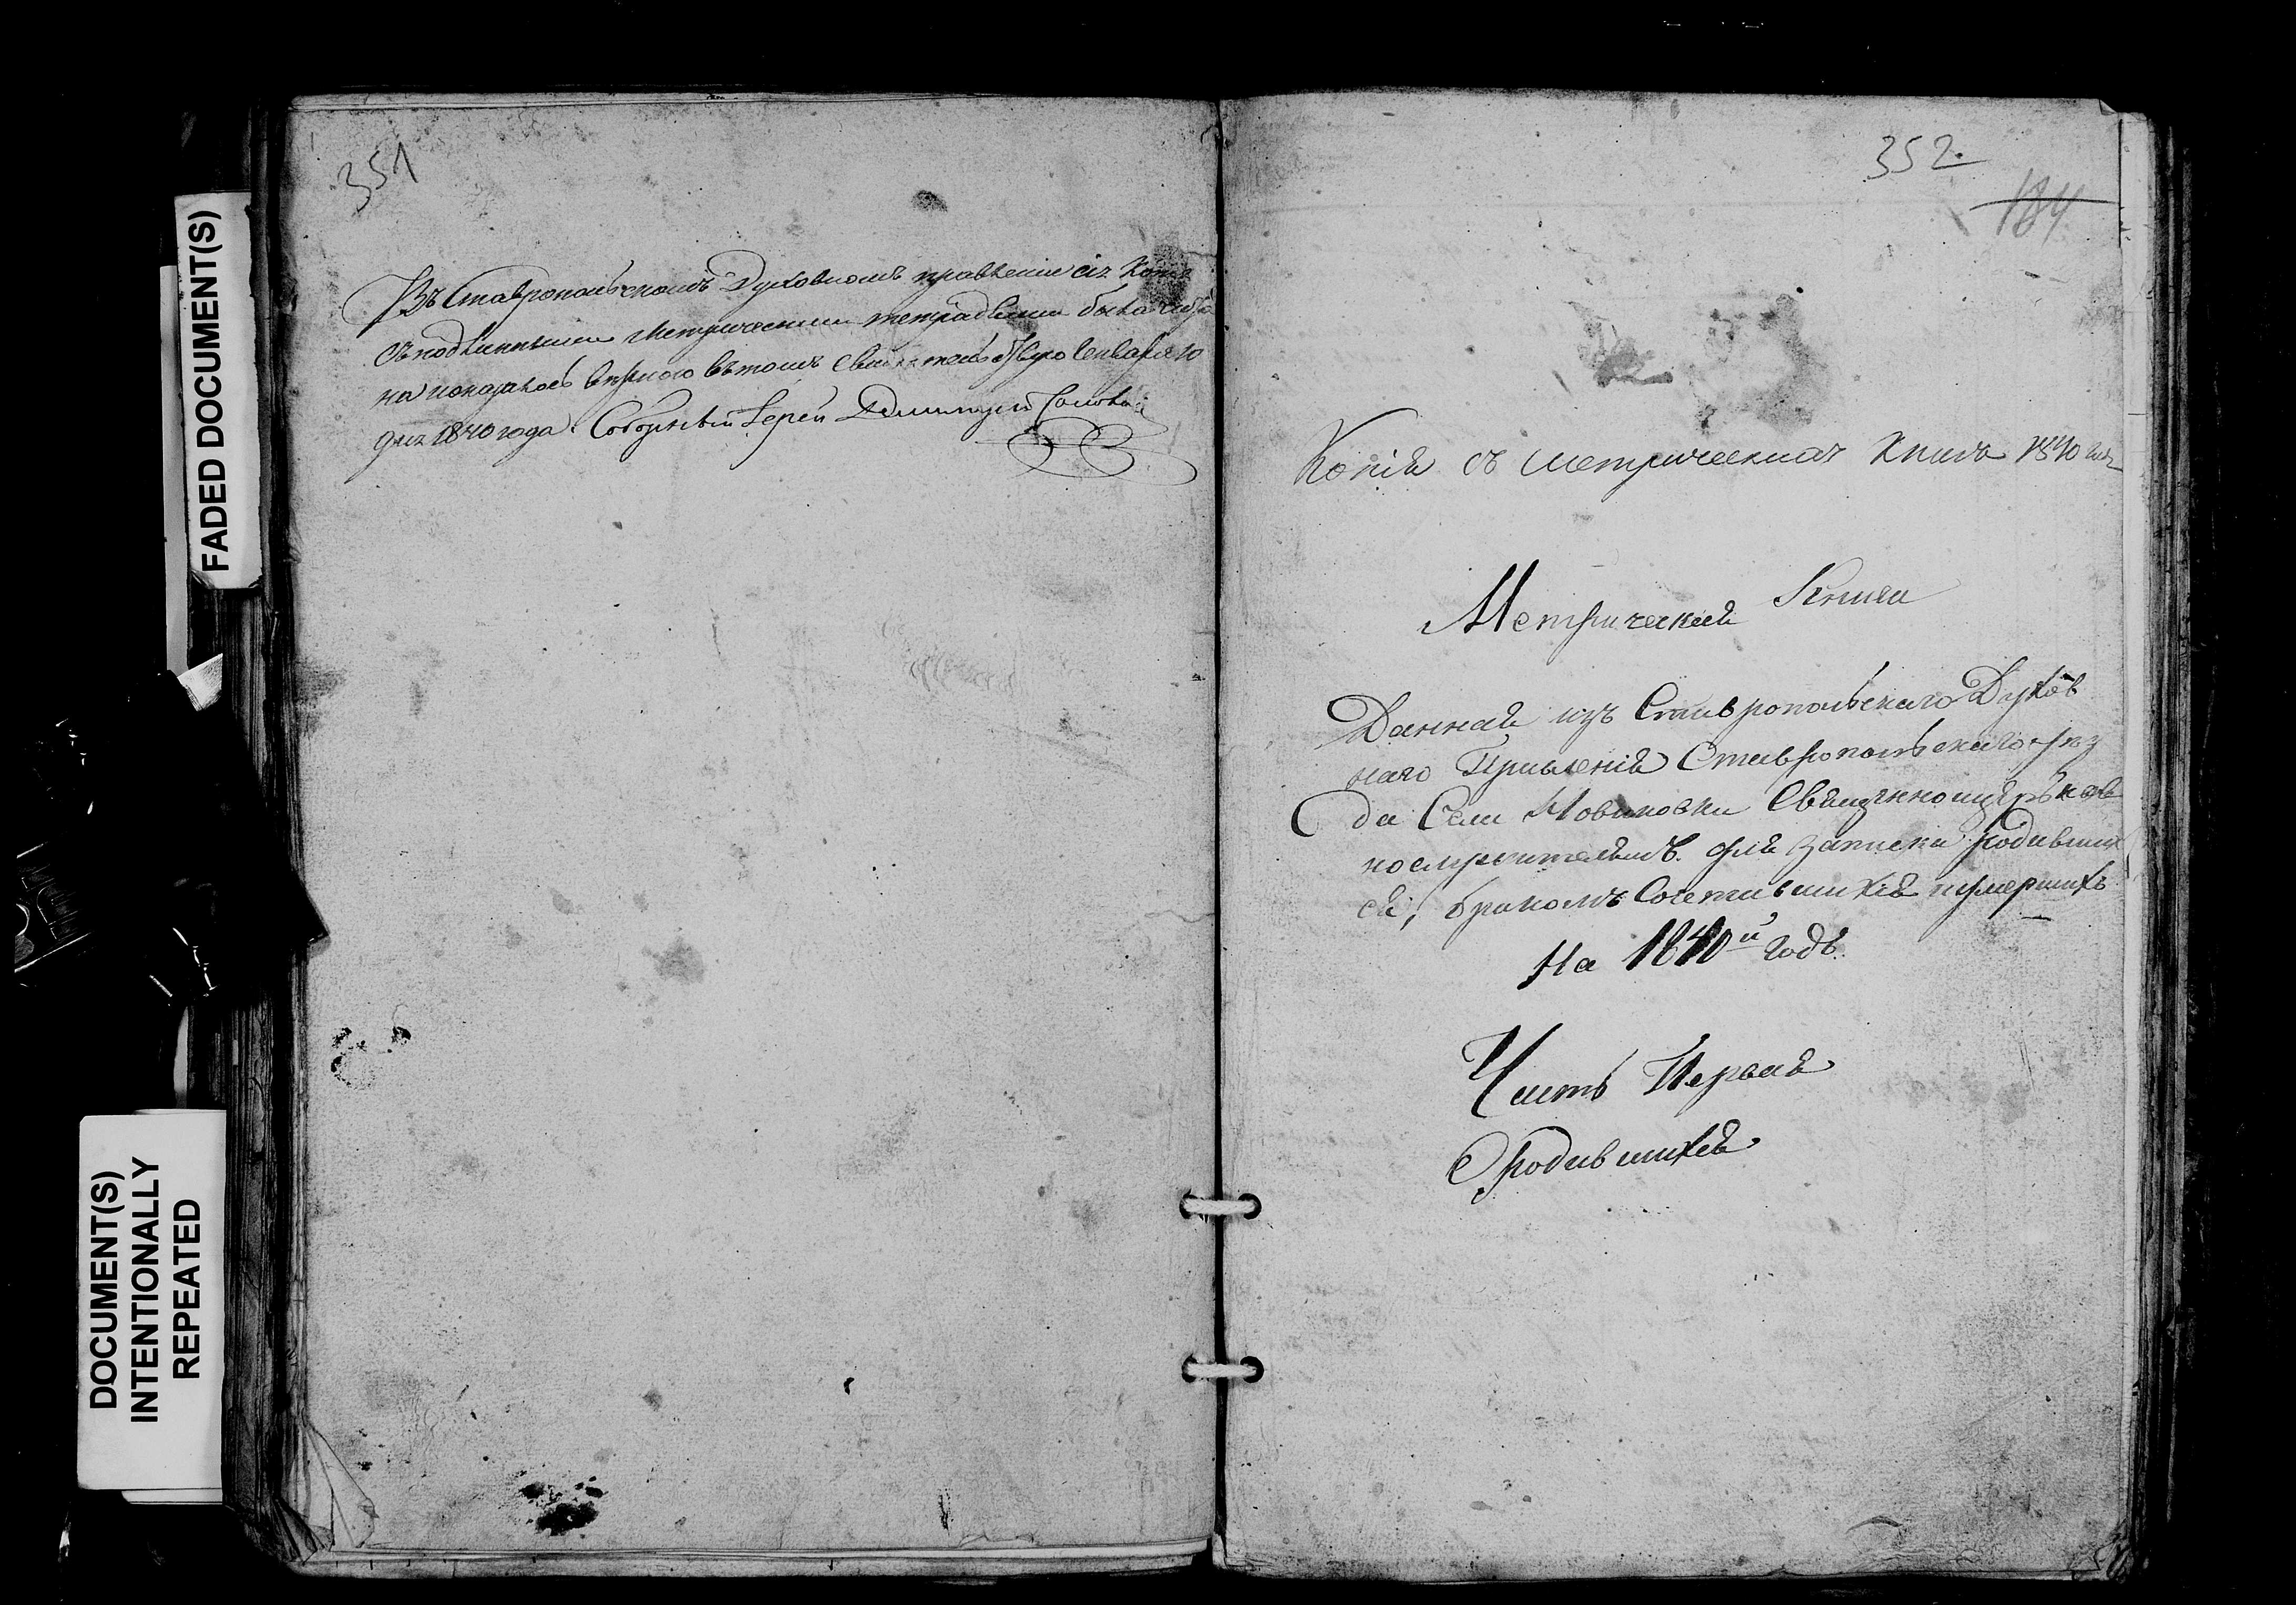 FADED DOCUMENT(S)
DOCUMENT(S)
INTENTIONALLY
REPEATED
351
Въ Ставропольскомъ Духовномъ правленіи сія Копія
съ подлинными метрическими тетрадьми была
на показалось вѣрною въ томъ свидѣтельствую Генваря 10
дня 1840 года. Соборный Іерей Димитрій
352.
184
Копія съ метрическихъ книгъ 1840 года
Метрическія Книги
Данная изъ Ставропольскаго Духов
наго Правленія Ставропольскаго уѣз
да Села Новиковки Священноцерков
нослужителямъ для записки родивших
ся, бракомъ Сочетавшихся и умершихъ
На 1840й годъ.
Часть Первая
О родившихся